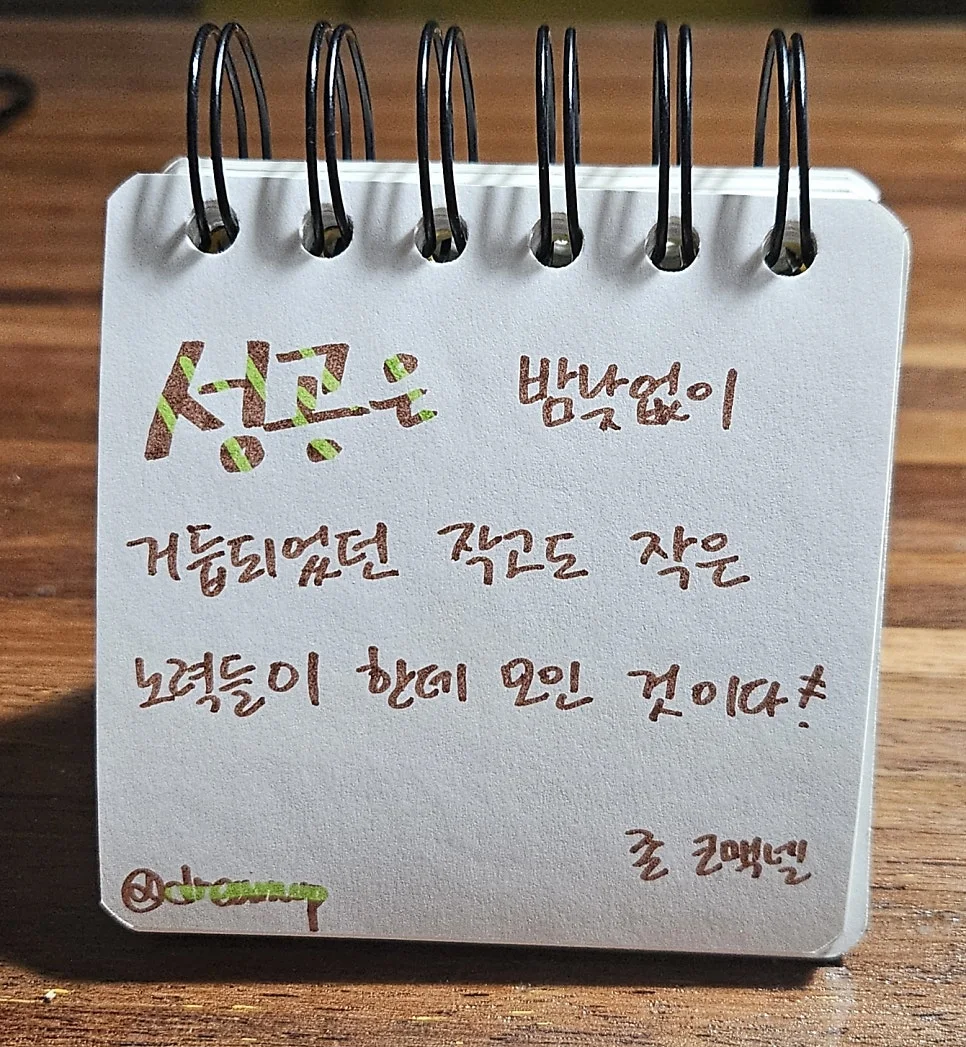 성공은 밤낮없이
거듭되었던 작고도 작은
노력들이 한데 모인 것이다!
죤 크맥넬